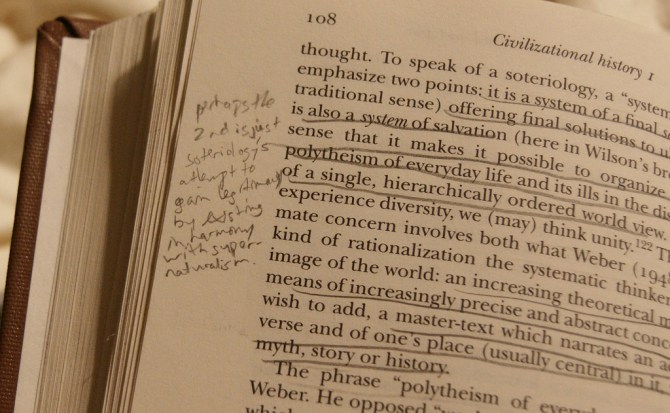 108
Civilizational history I
thought. To speak of a soteriology, a "system
emphasize two points: it is a system of a final s
traditional sense) offering final solutions to u
is also a system of salvation (here in Wilson's br
sense that it makes it possible to organize
polytheism of everyday life and its ills in the di
of a single, hierarchically ordered world view.
experience diversity, we (may) think unity.122 Th
mate concern involves both what Weber (194
kind of rationalization the systematic thinke
image of the world: an increasing theoretical m
means of increasingly precise and abstract conc
wish to add, a master-text which narrates an a
verse and of one's place (usually central) in it,
myth, story or history.
The phrase "polytheism of every
Weber. He opposed
which
perhaps the
2nd is just
soteriology's
attempt to
gain legitimacy
by existing
in harmony
with super-
naturalism.